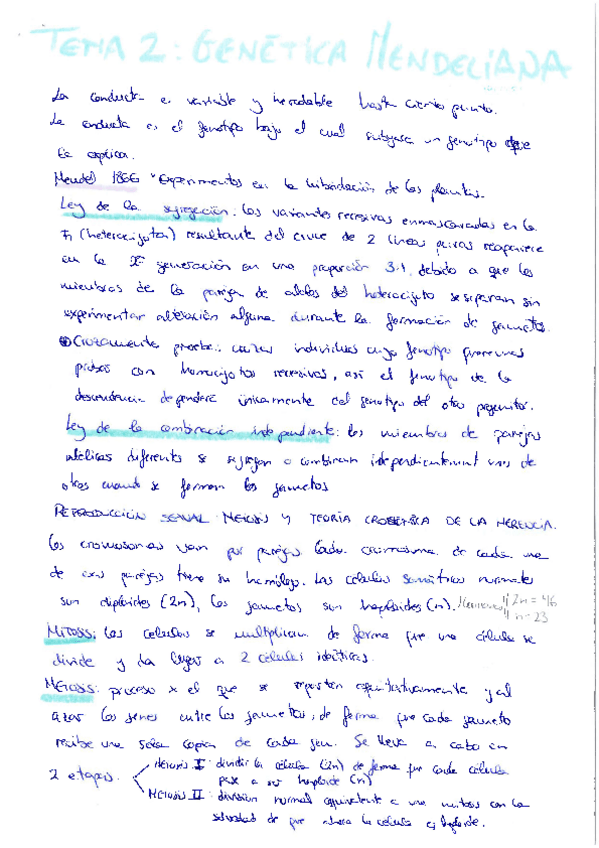 TEMA 2: GENÉTICA MENDELIANA
La conducta es variable y heredable hasta cierto punto.
La conducta es el fenotipo bajo el cual subyace un genotipo que
la explica.
Mendel 1866 "Experimentos en la hibridación de las plantas.
Ley de la segregación: las variantes recesivas enmascaradas en la
F1 (heterocigota) resultante del cruce de 2 líneas puras reaparece
en la 2ª generación en una proporción 3:1, debido a que los
miembros de la pareja de alelos del heterocigoto se separan sin
experimentar alteración alguna durante la formación de gametos.
Cruzamiento prueba: cruzar individuos cuyo fenotipo queremos
probar con homocigotos recesivos, así el fenotipo de la
descendencia dependerá únicamente del genotipo del otro progenitor.
Ley de la combinación independiente: los miembros de parejas
alélicas diferentes se segregan o combinan independientemente unos de
otros cuando se forman los gametos
REPRODUCCIÓN SEXUAL MEIOSIS Y TEORÍA CROMOSÓMICA DE LA HERENCIA.
Los cromosomas van por parejas. Cada cromosoma de cada una
de esas parejas tiene su homólogo. Las células somáticas normales
son diploides (2n), los gametos son haploides (n). Humanos 2n = 46
n = 23
MITOSIS: Las células se multiplican de forma que una célula se
divide y da lugar a 2 células idénticas.
MEIOSIS: proceso x el que se reparten equitativamente y al
azar los genes entre los gametos, de forma que cada gameto
recibe una sola copia de cada gen. Se lleva a cabo en
2 etapas.
MEIOSIS I: dividir la célula (2n) de forma que cada célula
pasa a ser haploide (n)
MEIOSIS II: división normal equivalente a una mitosis con la
salvedad de que ahora la célula es haploide.